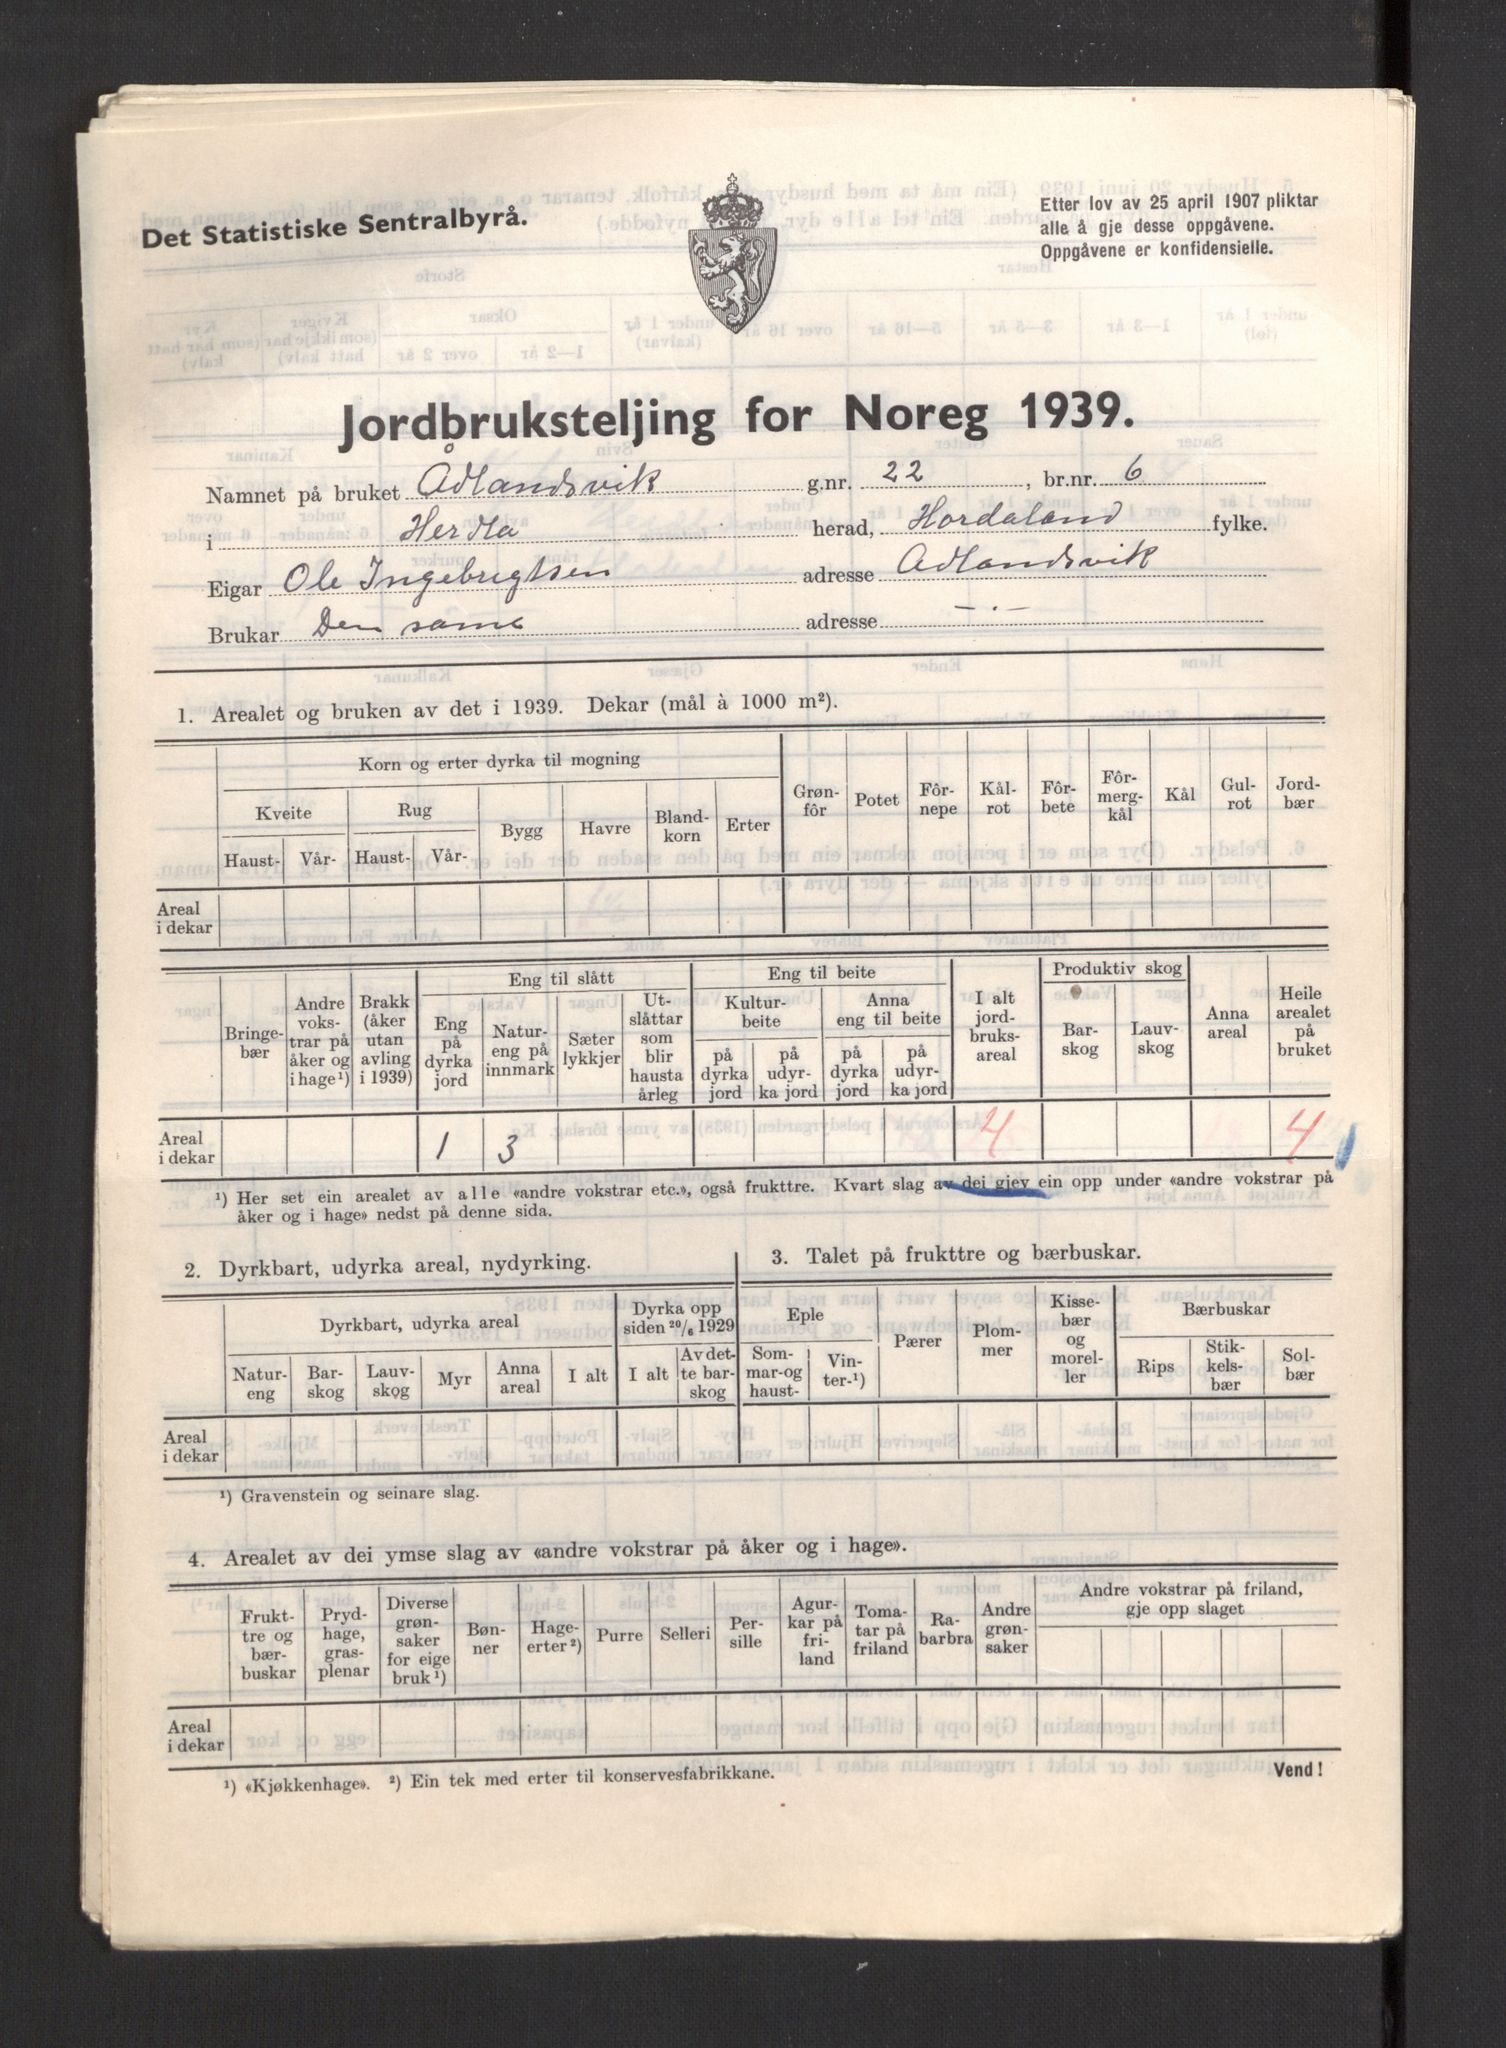 Det Statistiske Sentralbyrå.
Etter lov av 25 april 1907 pliktar
alle å gje desse oppgåvene.
Oppgåvene er konfidensielle.
Jordbruksteljing for Noreg 1939.
Namnet på bruket Ådlandsvik g.nr. 22, br.nr. 6
i Herdla herad, Hordaland fylke.
Eigar Ole Ingebrigtsen adresse Ådlandsvik
Brukar Den same adresse —·—
1. Arealet og bruken av det i 1939. Dekar (mål à 1000 m²).
Korn og erter dyrka til mogning
Kveite Rug Bygg Havre Bland-korn Erter Grøn-fôr Potet Fôr-nepe Kål-rot Fôr-bete Fôr-merg-kål Kål Gul-rot Jord-bær
Haust- Vår- Haust- Vår-
Areal
i dekar
Eng til slått Eng til beite Produktiv skog
Bringe-bær Andre voks-trar på åker og i hage¹) Brakk (åker utan avling i 1939) Eng på dyrka jord Natur-eng på innmark Sæter lykkjer Ut-slåttar som blir hausta årleg
Kultur-beite Anna eng til beite
på dyrka jord på udyr-ka jord på dyrka jord på udyr-ka jord
I alt jord-bruks-areal Bar-skog Lauv-skog Anna areal Heile arealet på bruket
Areal
i dekar 1 3 4 4
¹) Her set ein arealet av alle «andre vokstrar etc.», også frukttre. Kvart slag av dei gjev ein opp under «andre vokstrar på
åker og i hage» nedst på denne sida.
2. Dyrkbart, udyrka areal, nydyrking.
Dyrkbart, udyrka areal Dyrka opp siden 20/6 1929
Natur-eng Bar-skog Lauv-skog Myr Anna areal I alt I alt Av det-te bar-skog
Areal
i dekar
¹) Gravenstein og seinare slag.
3. Talet på frukttre og bærbuskar.
Eple Pærer Plom-mer Kisse-bær og morel-ler Bærbuskar
Som-mar-og haust- Vin-ter-¹) Rips Stik-kels-bær Sol-bær
4. Arealet av dei ymse slag av «andre vokstrar på åker og i hage».
Frukt-tre og bær-buskar Pryd-hage, gras-plenar Diverse grøn-saker for eige bruk¹) Bøn-ner Hage-erter²) Purre Selleri Per-sille Agur-kar på fri-land Toma-tar på friland Ra-barbra Andre grøn-saker Andre vokstrar på friland, gje opp slaget
Areal
i dekar
¹) «Kjøkkenhage». ²) Ein tek med erter til konservesfabrikkane.
Vend!